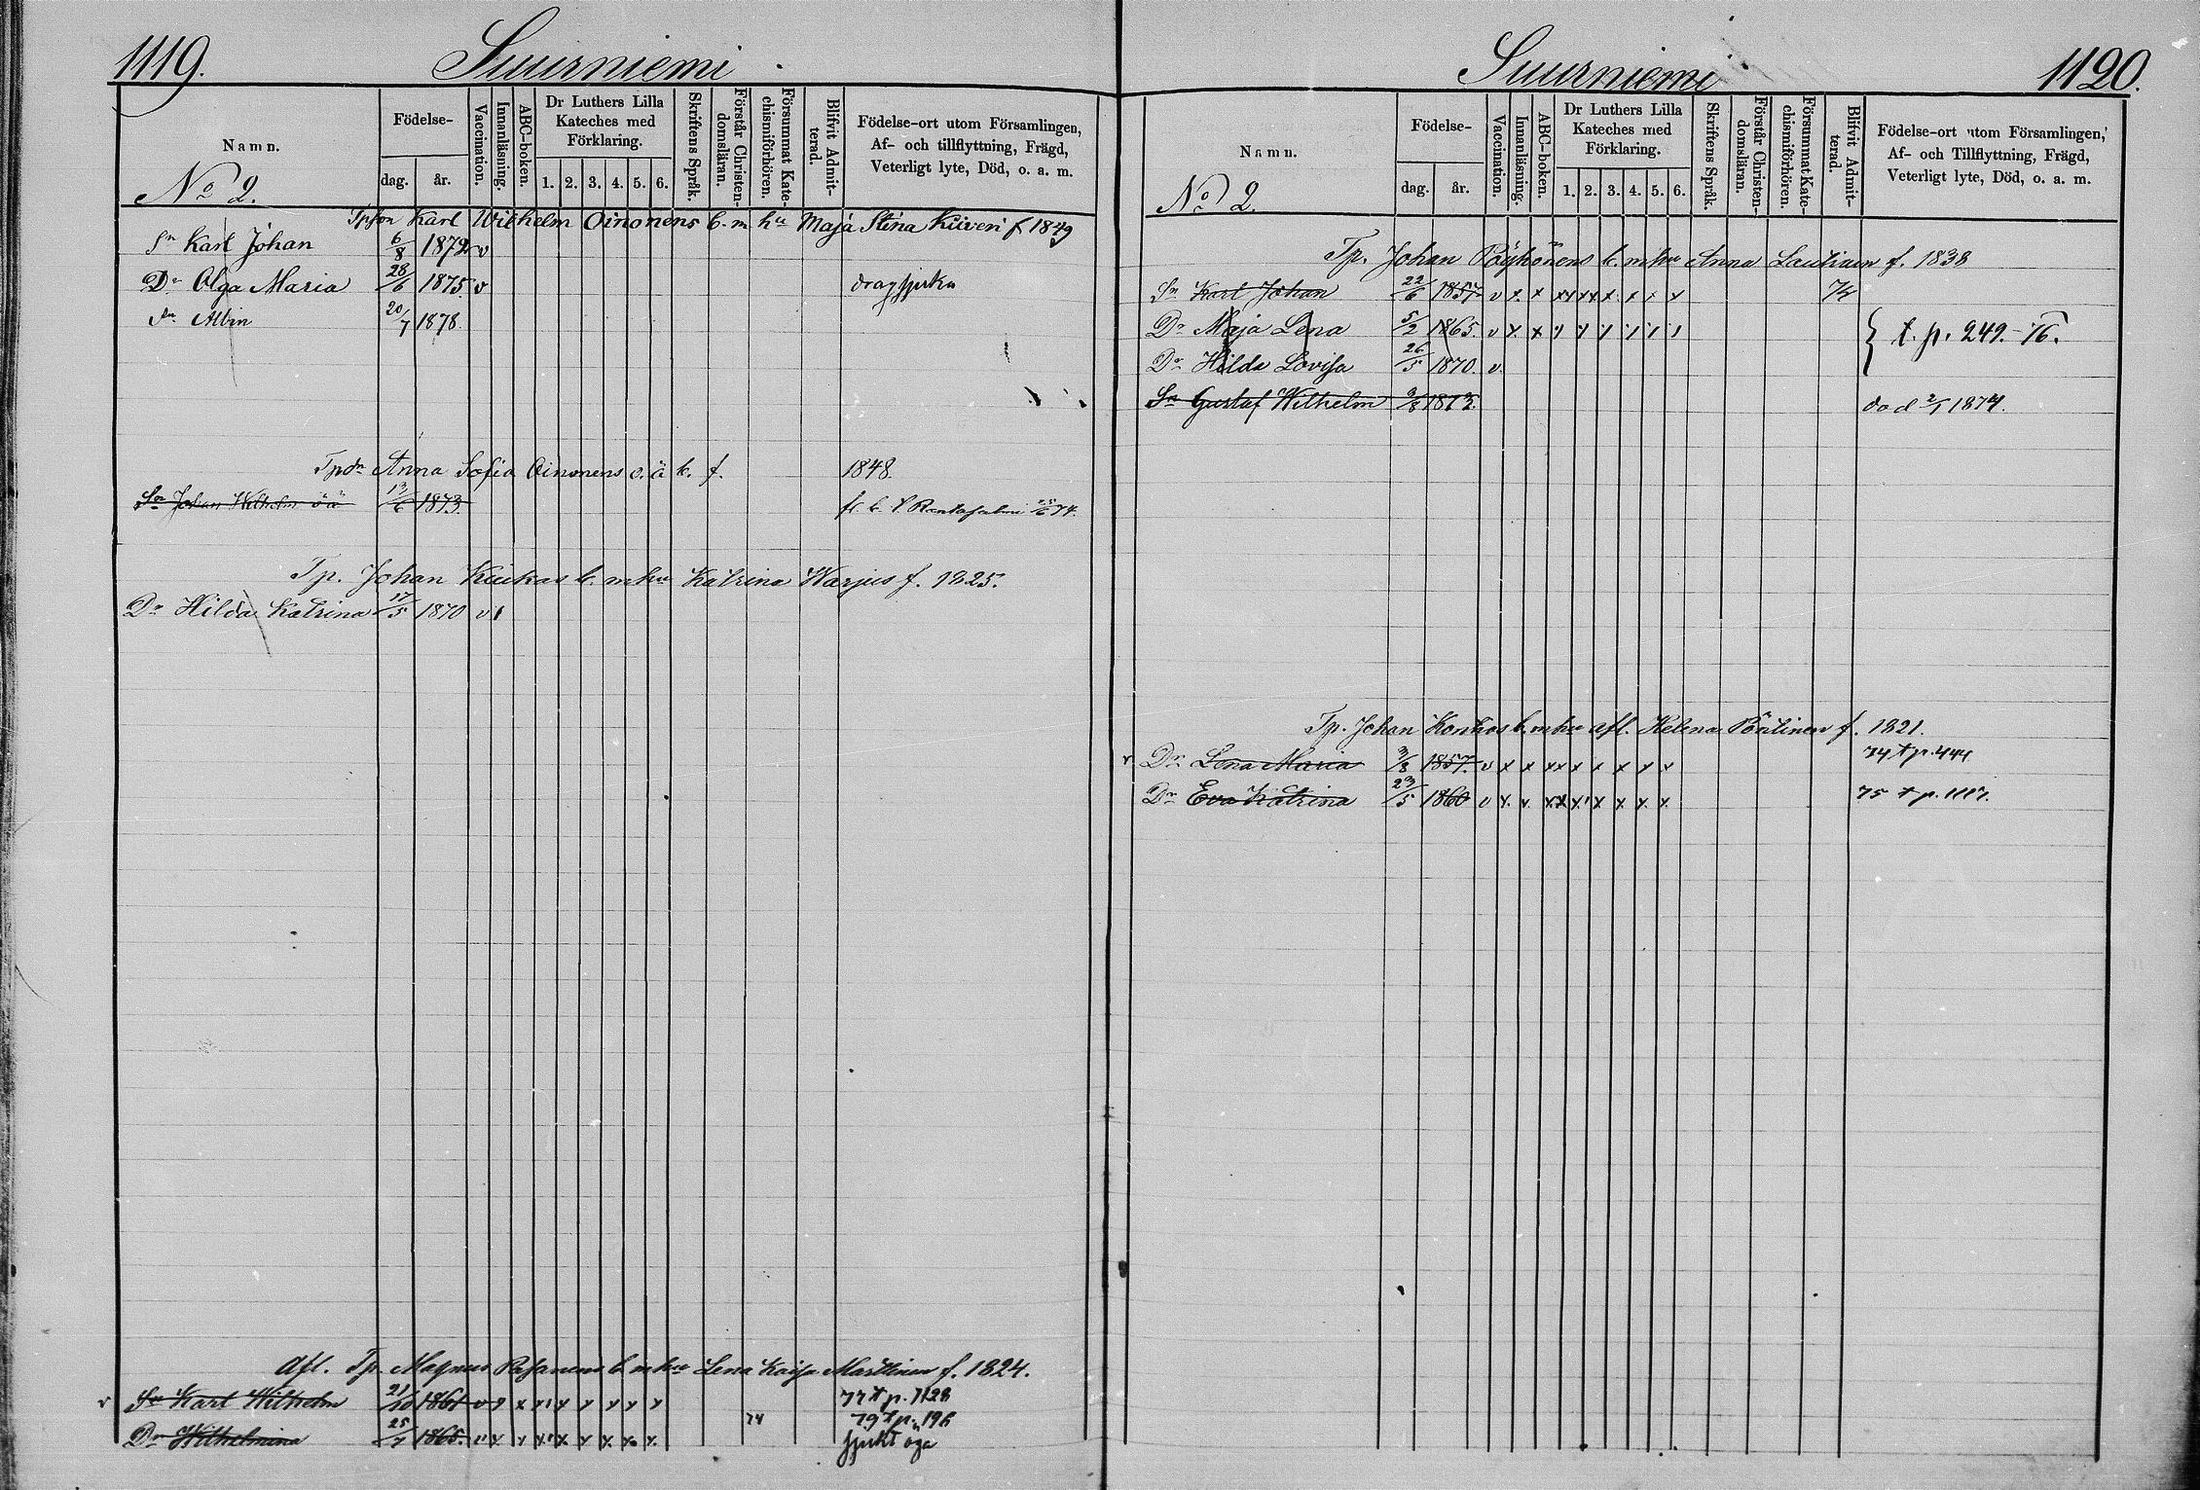 1119.
Suurniemi
Namn.
Födelse-
dag.
år.
Vaccination.
Innanläsning.
ABC-boken.
Dr Luthers Lilla Kateches med Förklaring.
1. 2. 3. 4. 5. 6.
Skriftens Språk.
Förstår Christendomsläran.
Försummat Katechismiförhören.
Blifvit Admitterad.
Födelse-ort utom Församlingen,
Af- och tillflyttning, Frägd,
Veterligt lyte, Död, o. a. m.
No 2.
Karl Wilhelm Oinonens b. m hu Maja Stina Kiiveri f 1849
Sn Karl Johan 6/8 1872 v
Dr Olga Maria 28/6 1875 v
Sn Albin 20/7 1878.
Anna Sofia Oinonens o. ä b. f. 1848.
Sn Johan Wilhelm oä 1873.
Tp. Johan b. m hu Katrina Warjus f. 1825.
Dr Hilda Katrina 17/5 1870 v
Afl. Tp. Magnus b. m hu Lena Kaisa Marttinen f. 1824.
v Sn Karl Wilhelm 21/10 1861 v x x x x x x 77 t p. 1128
Dr Wilhelmina 1865. 74 79 t p. 196
1120.
Suurniemi
Namn.
Födelse-
dag.
år.
Vaccination.
Innanläsning.
ABC-boken.
Dr Luthers Lilla Kateches med Förklaring.
1. 2. 3. 4. 5. 6.
Skriftens Språk.
Förstår Christendomsläran.
Försummat Katechismiförhören.
Blifvit Admitterad.
Födelse-ort utom Församlingen,
Af- och Tillflyttning, Frägd,
Veterligt lyte, Död, o. a. m.
No 2.
Tp. Johan Pöyhönens b. m hu Anna Lautiain f. 1838
Sn Karl Johan 22/6 1857 v x x xx xx x x x x
Dr Maja Lena 5/2 1865. v x x
Dr Hilda Lovisa 26/5 1870. v.
} t. p. 249.-76.
Sn Gustaf Wilhelm 9/8 1873. död 2/1 1874.
Tp. Johan b. m hu afl. Helena f. 1821.
v Dr Lena Maria 3/8 1857. v x x xx x x x x x 74 t p. 444
Dr Eva Katrina 23/5 1860 v x 75 t p. 1117.